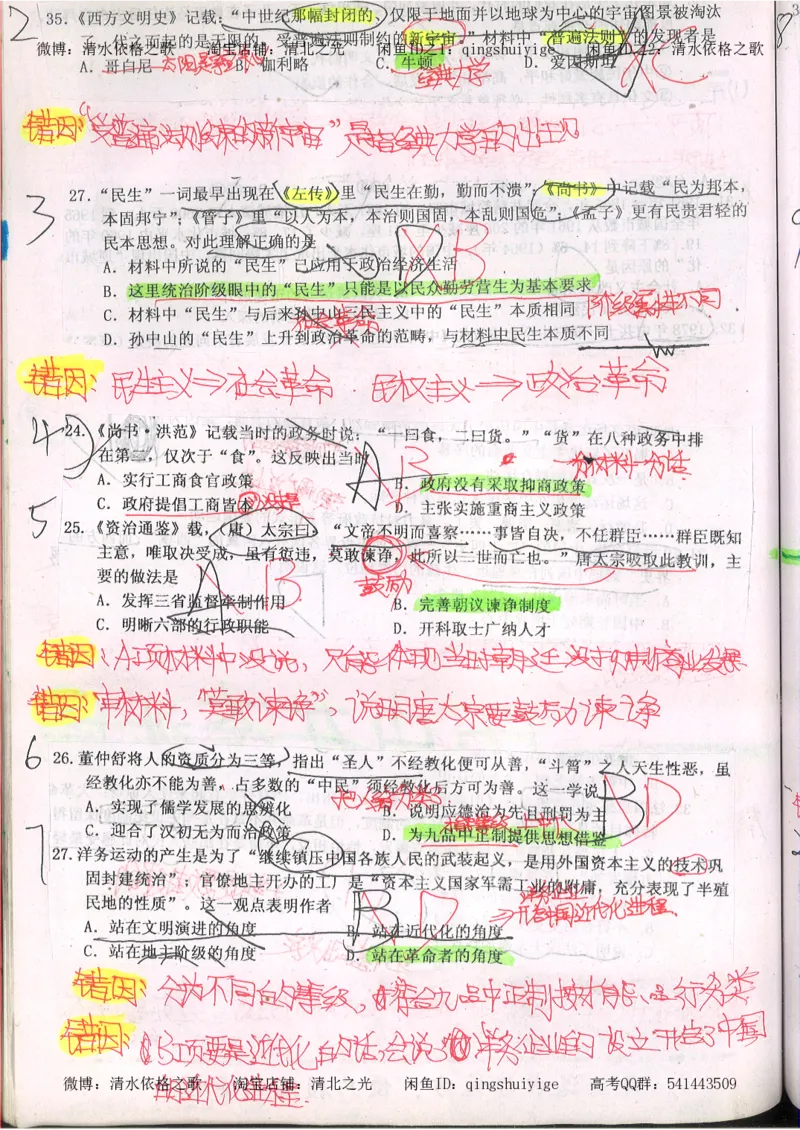 2
35.《西方文明史》记载：“中世纪那幅封闭的、仅限于地面并以地球为中心的宇宙图景被淘汰
了，代之而起的是无限的、受普遍法则制约的新宇宙。”材料中“普遍法则”的发现者是
微博：清水依格之歌 淘宝店铺：清北之光 闲鱼ID：qingshuiyige
A．哥白尼 B．伽利略 C．牛顿 D．爱因斯坦
经典力学
错因：“受普遍法则约束的新宇宙”是指经典力学
3
27.“民生”一词最早出现在《左传》里“民生在勤，勤而不溃”；《尚书》中记载“民为邦本，
本固邦宁”；《管子》里“以人为本，本治则国固，本乱则国危”；《孟子》更有民贵君轻的
民本思想。对此理解正确的是
D B
A．材料中所说的“民生”已应用于政治经济生活
B．这里统治阶级眼中的“民生”只能是以民众勤劳营生为基本要求
C．材料中“民生”与后来孙中山三民主义中的“民生”本质相同
阶级属性不同
D．孙中山的“民生”上升到政治革命的范畴，与材料中民生本质不同
社会革命
错因：民生主义⇒社会革命 民权主义→政治革命
4
24.《尚书·洪范》记载当时的政务时说：“一曰食，二曰货。”“货”在八种政务中排
在第二，仅次于“食”。这反映出当时
A B
A．实行工商食官政策 B．政府没有采取抑商政策
C．政府提倡工商皆本 D．主张实施重商主义政策
没提
5
25.《资治通鉴》载，（唐）太宗曰：“文帝不明而喜察……事皆自决，不任群臣……群臣既知
主意，唯取决受成，虽有愆违，莫敢谏诤，此所以二世而亡也。”唐太宗吸取此教训，主
要的做法是
A B
鼓励
A．发挥三省监督牵制作用 B．完善朝议谏诤制度
C．明晰六部的行政职能 D．开科取士广纳人才
错因：A项材料中没说，只能体现当时朝廷没有抑制商业发展
错因：审材料，“莫敢谏诤”，说明唐太宗要鼓励谏诤
6
26.董仲舒将人的资质分为三等，指出“圣人”不经教化便可从善，“斗筲”之人天生性恶，虽
经教化亦不能为善，占多数的“中民”须经教化后方可为善。这一学说
B D
A．实现了儒学发展的思辨化 B．说明应德治为先且刑罚为主
C．迎合了汉初无为而治政策 D．为九品中正制提供思想借鉴
7
27.洋务运动的产生是为了“继续镇压中国各族人民的武装起义，是用外国资本主义的技术巩
固封建统治”；官僚地主开办的工厂是“资本主义国家军需工业的附庸，充分表现了半殖
民地的性质”。这一观点表明作者
B D
洋务企业
→开启中国近代化进程
A．站在文明演进的角度 B．站在近代化的角度
C．站在地主阶级的角度 D．站在革命者的角度
错因：分为不同的等级，符合九品中正制按才能、品行分类
错因：B项要是近代化的话，会说洋务企业的设立开启了中国
的近代化进程
微博：清水依格之歌 淘宝店铺：清北之光 闲鱼ID：qingshuiyige 高考QQ群：541443509